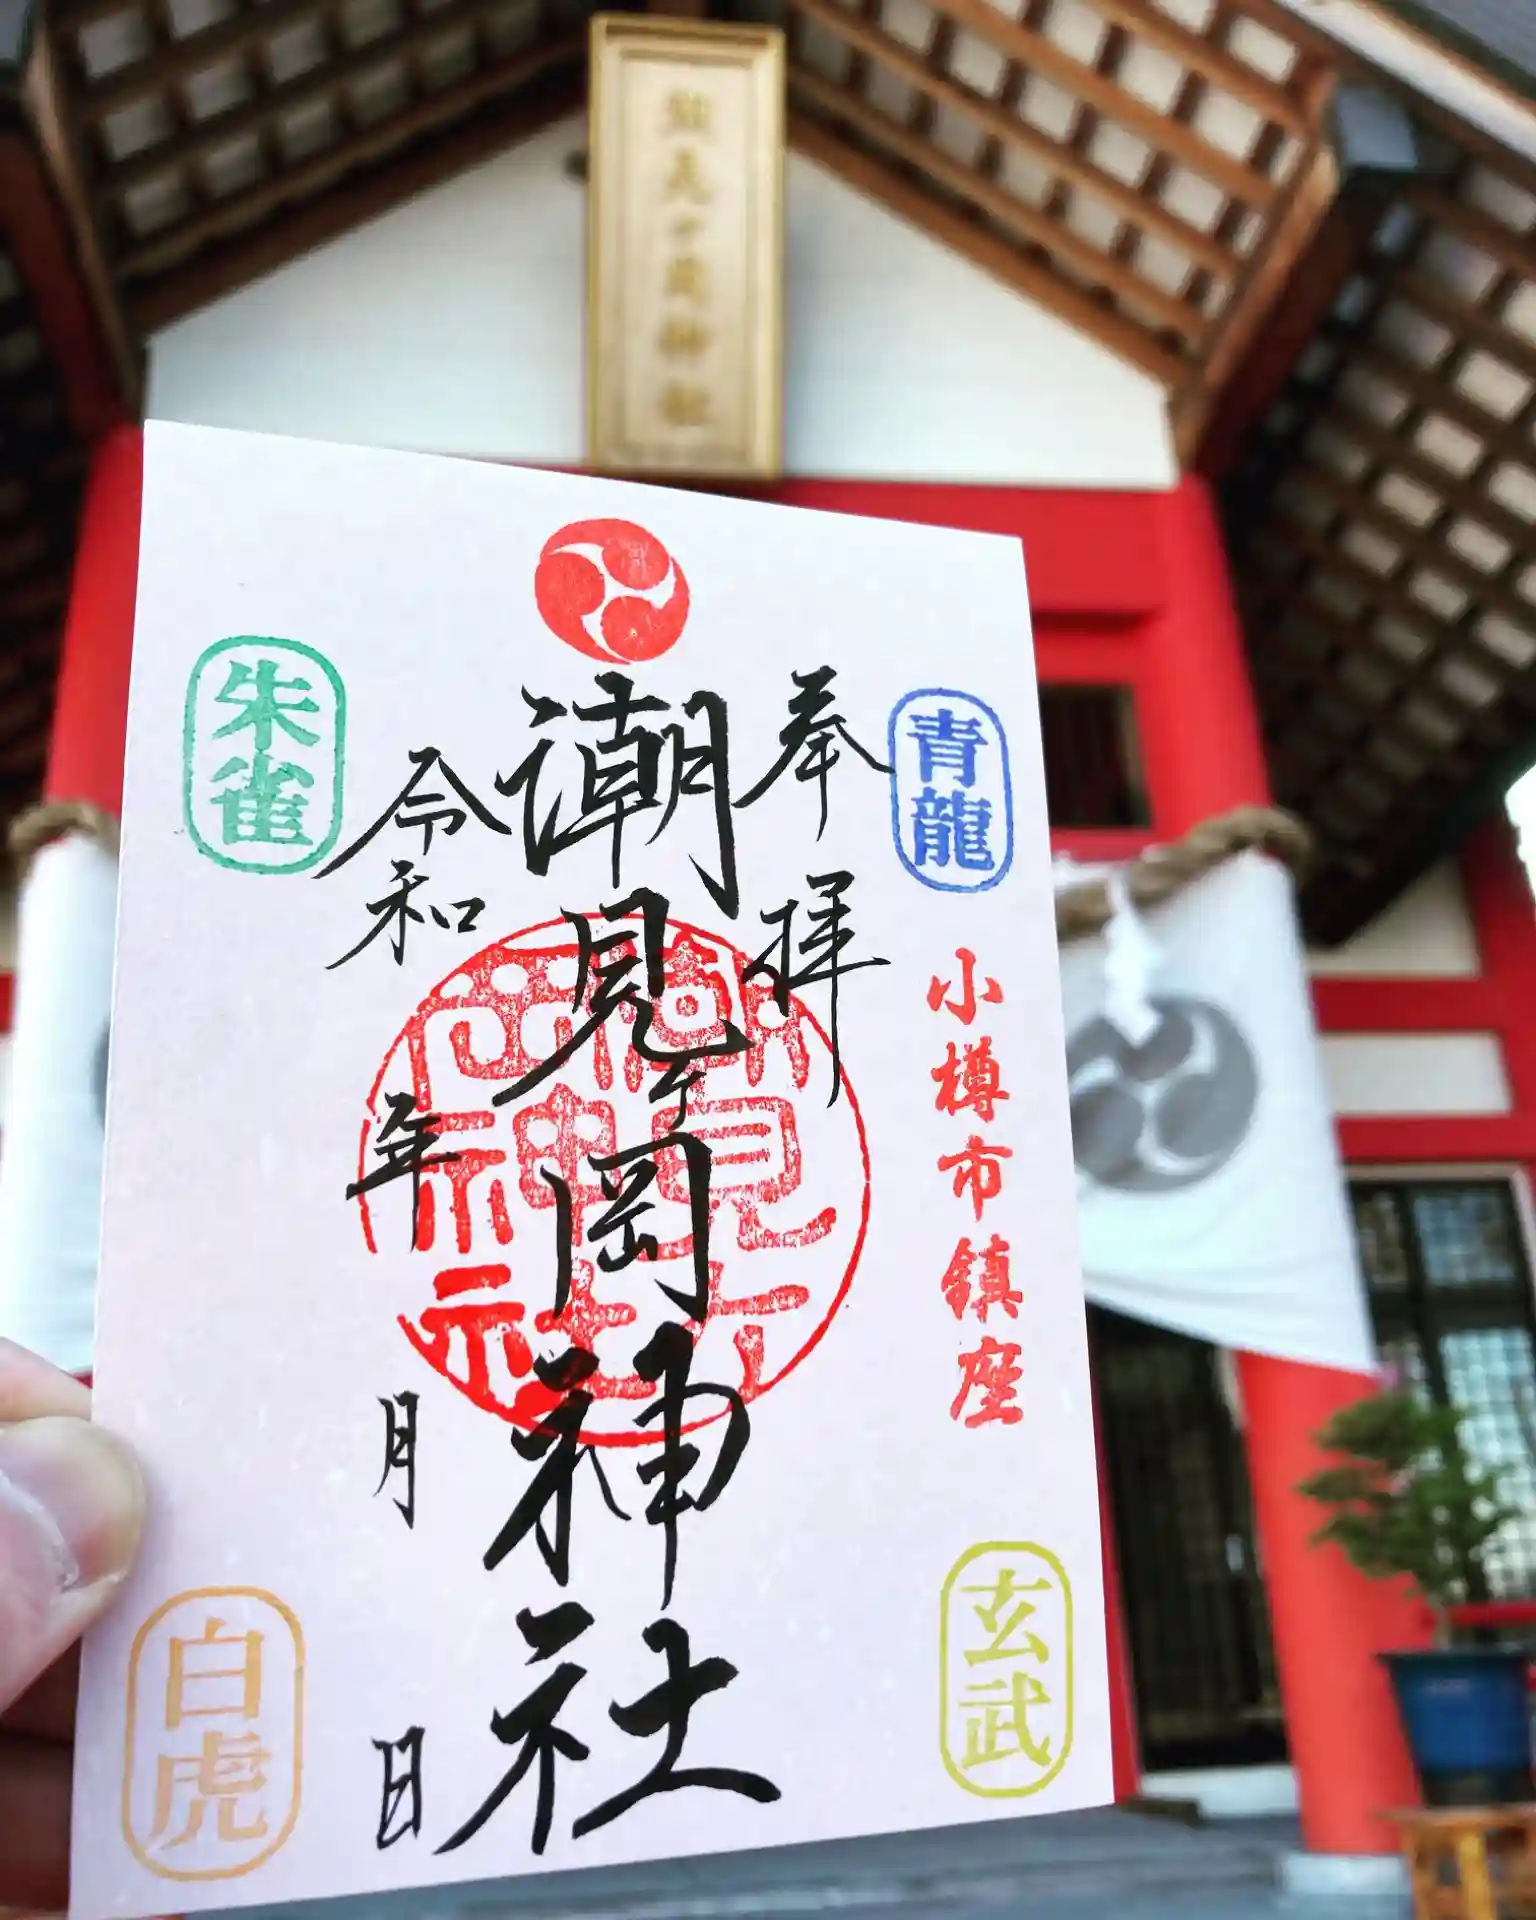 潮見ヶ岡神社
青龍
奉拝
潮見ヶ岡神社
令和 年 月 日
朱雀
小樽市鎮座
玄武
白虎